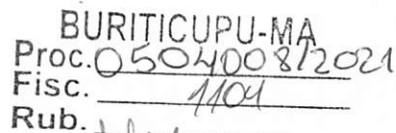 BURITICUPU-MA
Proc. 0504008/2021
Fisc. 1101
Rub.